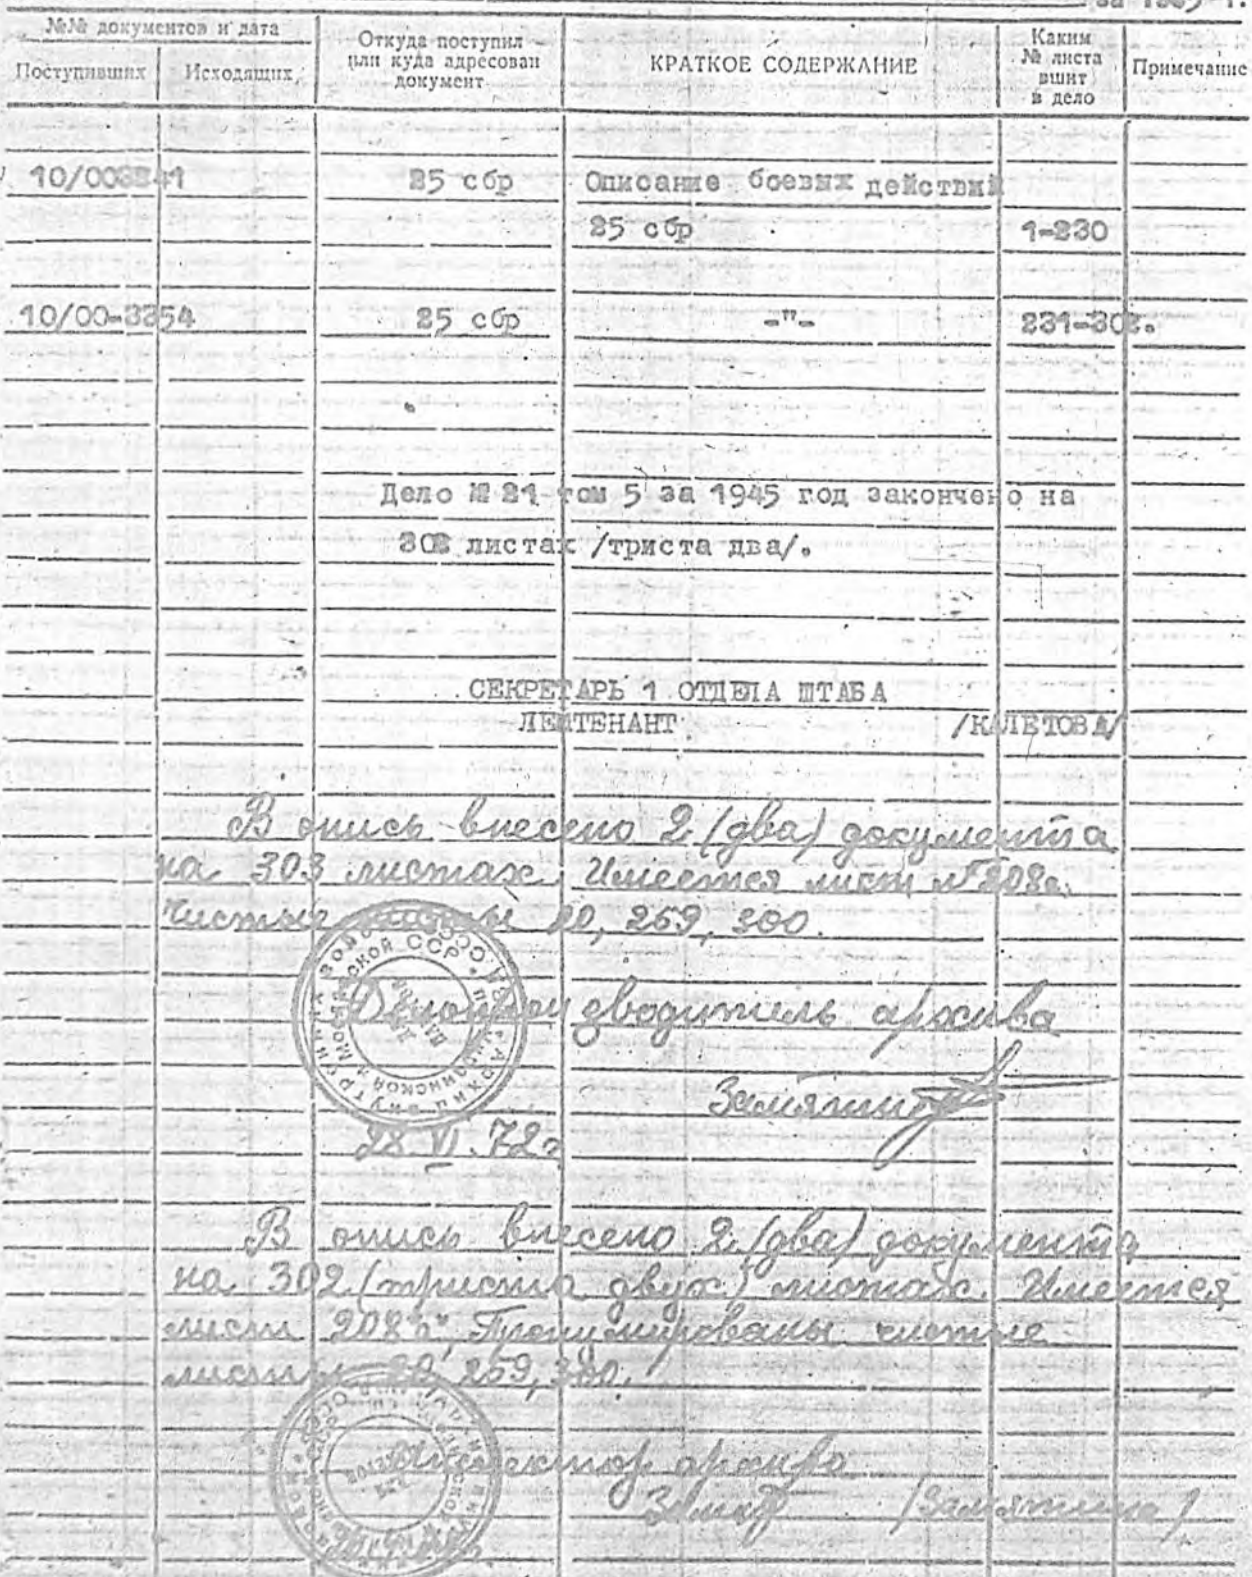 за 1945 г.
№№ документов и дата
Поступивших Исходящих
Откуда поступил
или куда адресован
документ
КРАТКОЕ СОДЕРЖАНИЕ
Каким
№ листа
вшит
в дело
Примечание
25 сбр Описание боевых действий
25 сбр 1-230
10/00-3354 25 сбр -"- 231-302.
Дело № 21 том 5 за 1945 год закончено на
302 листах /триста два/.
СЕКРЕТАРЬ 1 ОТДЕЛА ШТАБА
ЛЕЙТЕНАНТ /КАЛЕТОВА/
В опись внесено 2 (два) документа
на 303 листах. Имеется лист № 208а.
Чистые листы 20, 259, 300.
Делопроизводитель архива
28.VI.72г
В опись внесено 2 (два) документа
на 302 (триста двух) листах. Имеется
лист 208"а". Пронумерованы чистые
листы 20, 259, 300.
архива
(Замятина)